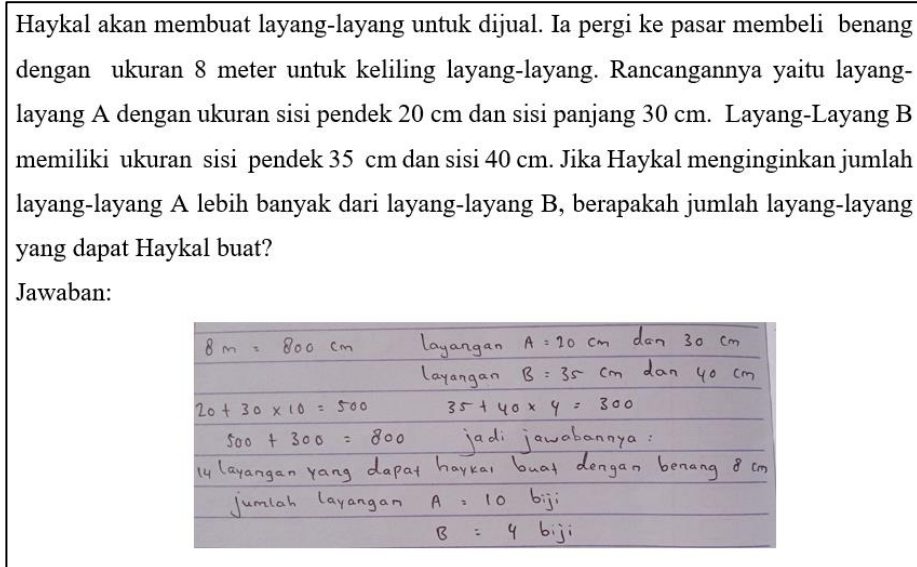 Haykal akan membuat layang-layang untuk dijual. Ia pergi ke pasar membeli benang
dengan ukuran 8 meter untuk keliling layang-layang. Rancangannya yaitu layang-
layang A dengan ukuran sisi pendek 20 cm dan sisi panjang 30 cm. Layang-Layang B
memiliki ukuran sisi pendek 35 cm dan sisi 40 cm. Jika Haykal menginginkan jumlah
layang-layang A lebih banyak dari layang-layang B, berapakah jumlah layang-layang
yang dapat Haykal buat?
Jawaban:
8 m = 800 cm layangan A = 20 cm dan 30 cm
layangan B = 35 cm dan 40 cm
20 + 30 x 10 = 500 35 + 40 x 4 = 300
500 + 300 = 800 jadi jawabannya :
14 layangan yang dapat haykal buat dengan benang 8 cm
jumlah layangan A = 10 biji
B = 4 biji